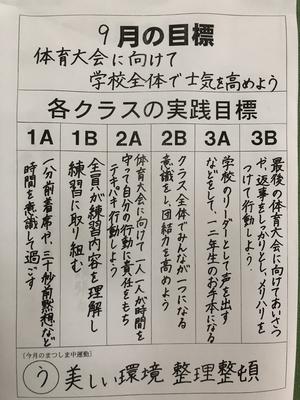 9月の目標
体育大会に向けて
学校全体で士気を高めよう
各クラスの実践目標
1A 1B 2A 2B 3A 3B
一分前着席や、三十秒前黙想など
時間を意識して過ごす
全員が練習内容を理解し
練習に取り組む
体育大会に向けて一人一人が時間を
守って自分の行動に責任をもち
テキパキ行動しよう
クラス全体でみんなが一つになる
意識をし、団結力を高めよう
学校のリーダーとして声を出す
などをして、一二年生のお手本になる
最後の体育大会に向けてあいさつ
や、返事をしっかりとし、メリハリを
つけて行動しよう.
〔今月のまつしま中運動〕
う 美しい環境 整理整頓